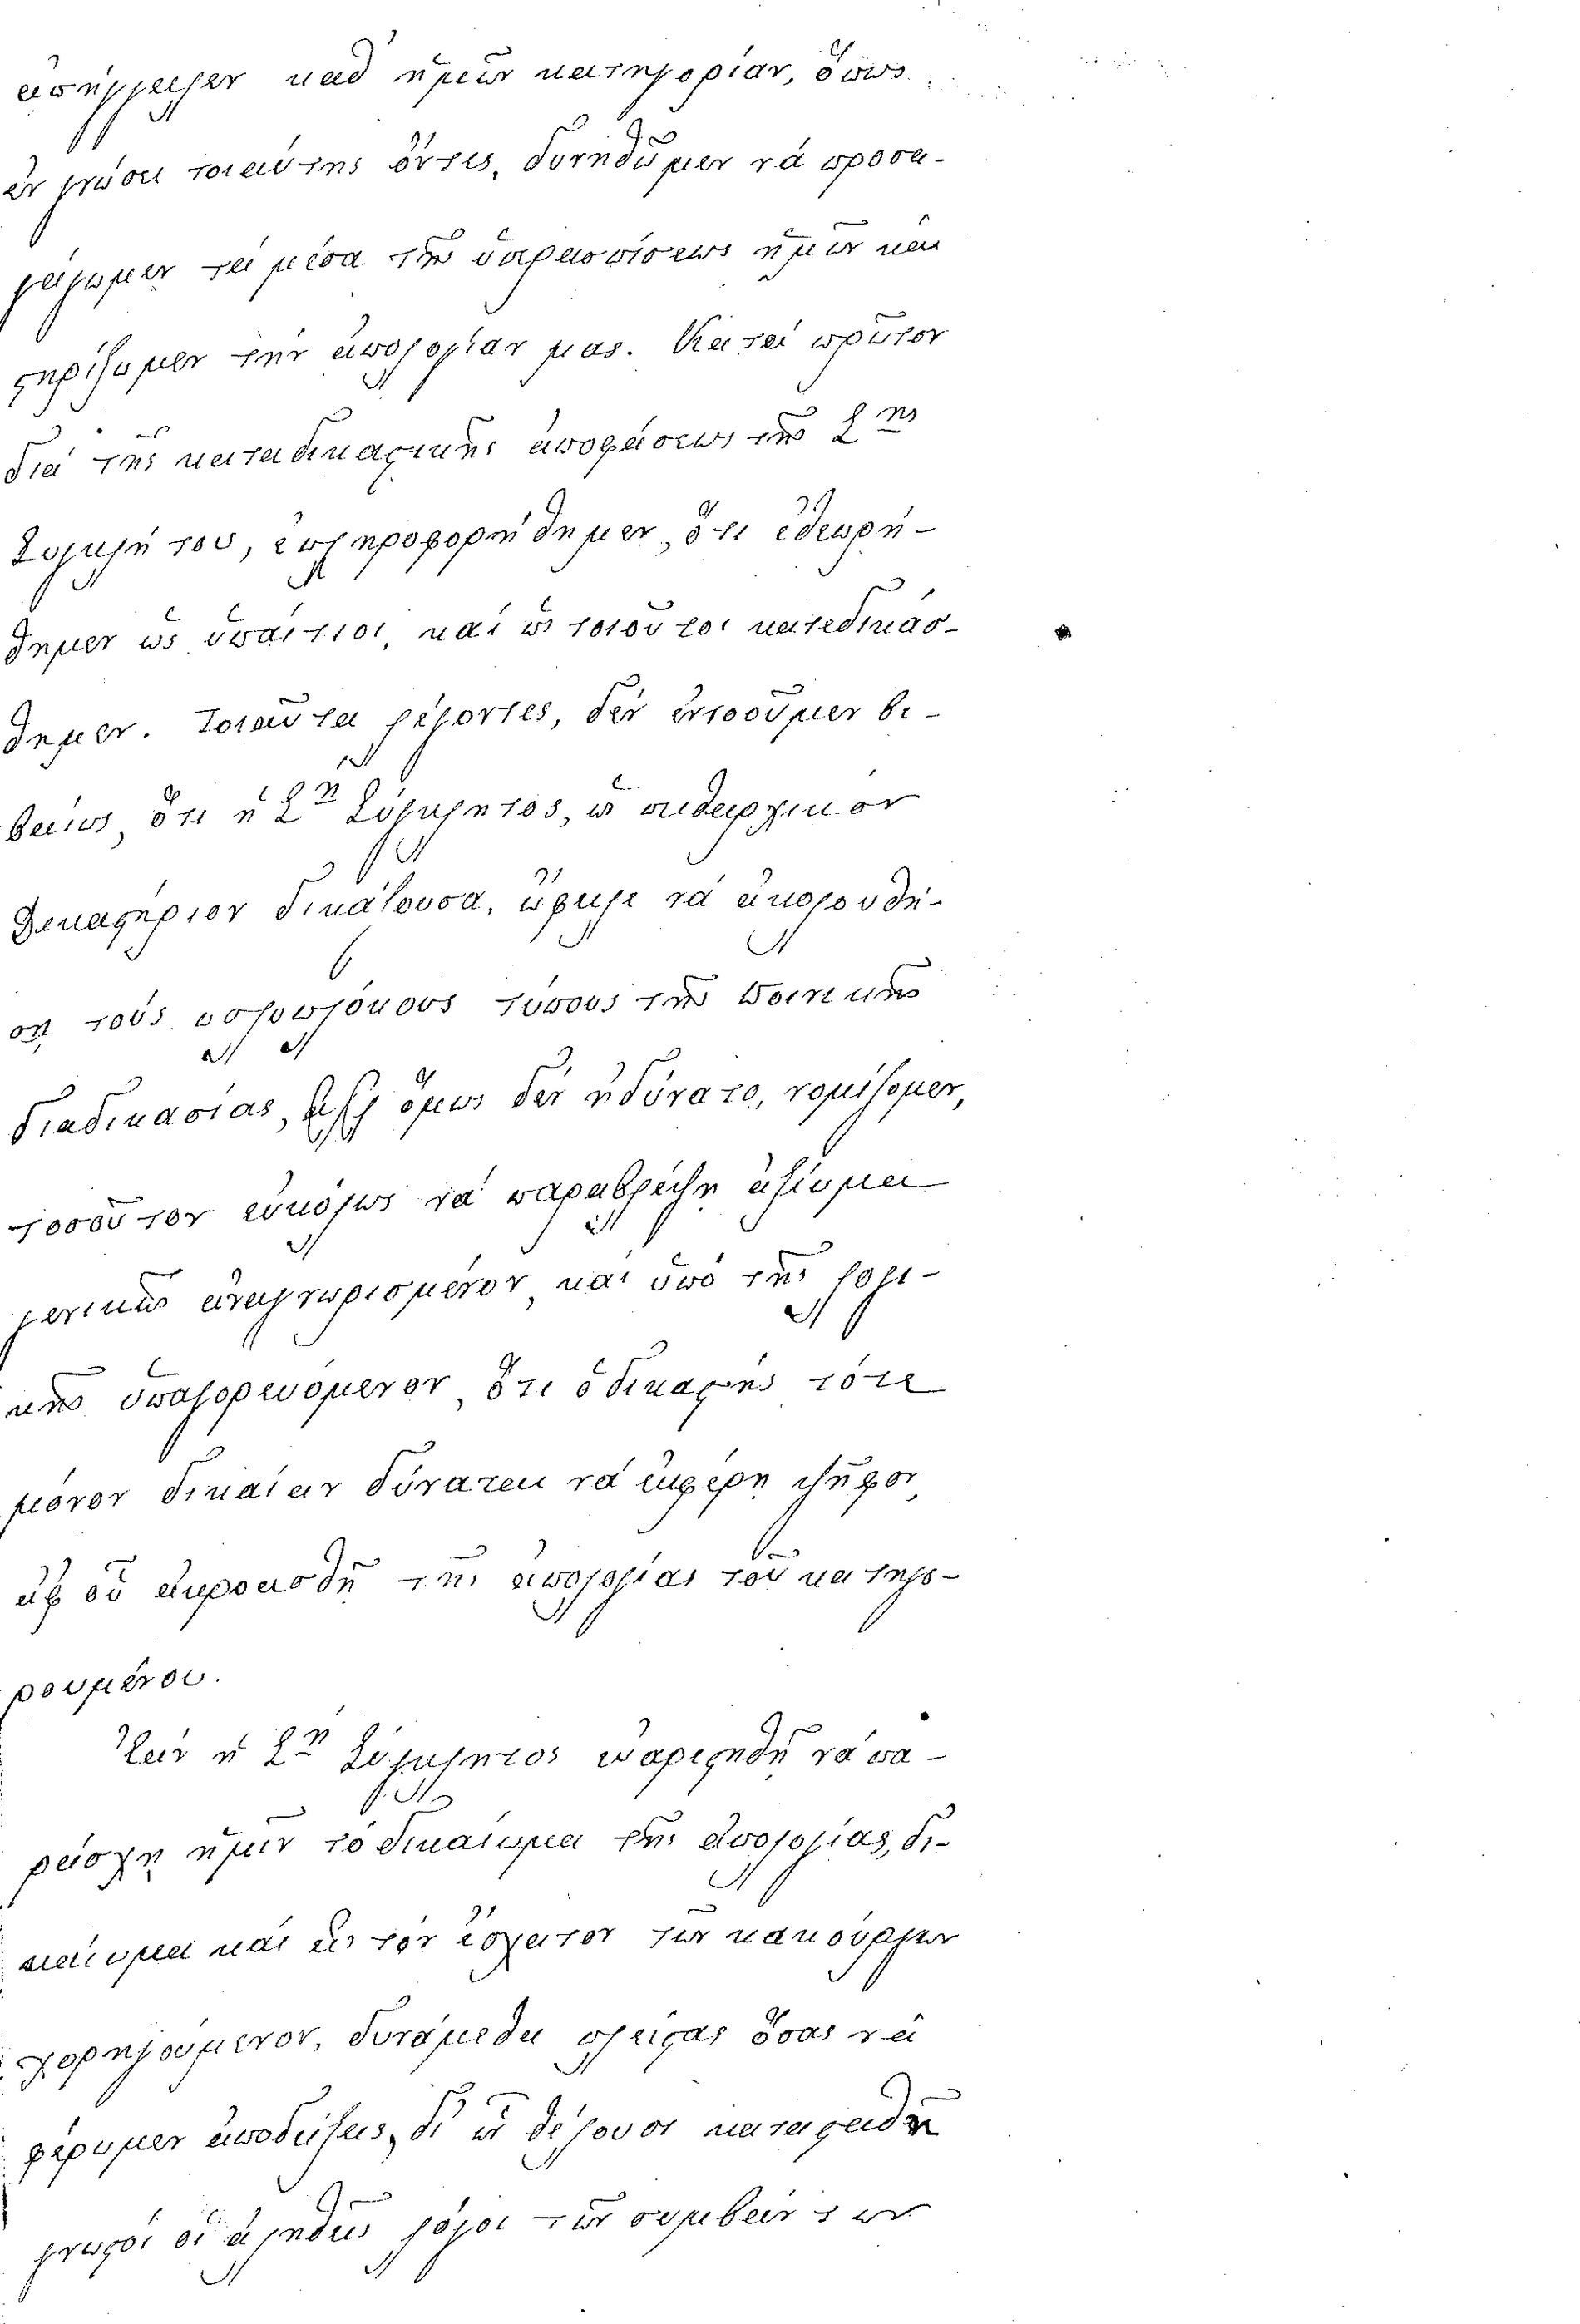 ἀπήγγειλεν καθ ἡμῶν κατηγορίαν, ὅπως
ἐν γνώσει τοιαύτης ὄντες, δυνηθῶμεν νά προσα-
γάγωμεν τά μέσα τῆς ὑπερασπίσεως ἡμῶν καί
στηρίξωμεν τήν ἀπολογίαν μας. Κατά πρῶτον
διά τῆς καταδικαστικῆς ἀποφάσεως τῆς Σ^ης
Συγκλήτου, ἐπληροφορήθημεν, ὅτι ἐθεωρή-
θημεν ὡς ὑπαίτιοι, καί ὡς τοιοῦτοι κατεδικάσ-
θημεν. Τοιαῦτα λέγοντες, δέν ἐννοοῦμεν βε-
βαίως, ὅτι ἡ Σ^η Σύγκλητος, ὡς πειθαρχικόν
Δικαστήριον δικάζουσα, ὤφειλε νά ἀκολουθή-
σῃ τούς πολυπλόκους τύπους τῆς Ποινικῆς
διαδικασίας, ἀλλ ὅμως δέν ἠδύνατο, νομίζομεν,
τοσοῦτον εὐκόλως νά παραβλέψῃ ἀξίωμα
γενικῶς ἀνεγνωρισμένον, καί ὑπό τῆς λογι-
κῆς ὑπαγορευόμενον, ὅτι ὁ δικαστής τότε
μόνον δικαίαν δύναται νά ἐκφέρῃ ψῆφον,
ἀφ οὗ ἀκροασθῇ τῆς ἀπολογίας τοῦ κατηγο-
ρουμένου.
Ἐάν ἡ Σ^η Σύγκλητος εὐαρεστηθῇ νά πα-
ράσχῃ ἡμῖν τό δικαίωμα τῆς ἀπολογίας, δι-
καίωμα καί εἰς τόν ἔσχατον τῶν κακούργων
χορηγούμενον, δυνάμεθα πλείστας ὅσας νά
φέρωμεν ἀποδείξεις, δι ὧν θέλουσι κατασταθῆ
γνωστοί οἱ ἀληθεῖς λόγοι τῶν συμβάντων